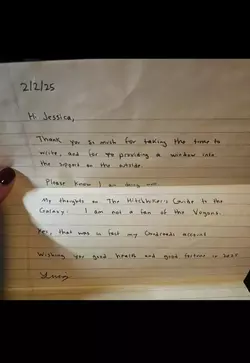 2/2/25
Hi Jessica,
Thank you so much for taking the time to
write, and for providing a window into
the support on the outside.
Please know I am doing
My thoughts on The Hitchhiker's Guide to the
Galaxy: I am not a fan of the Vogons.
Yes, that was in fact my Goodreads account.
Wishing you good health and good fortune in 2025